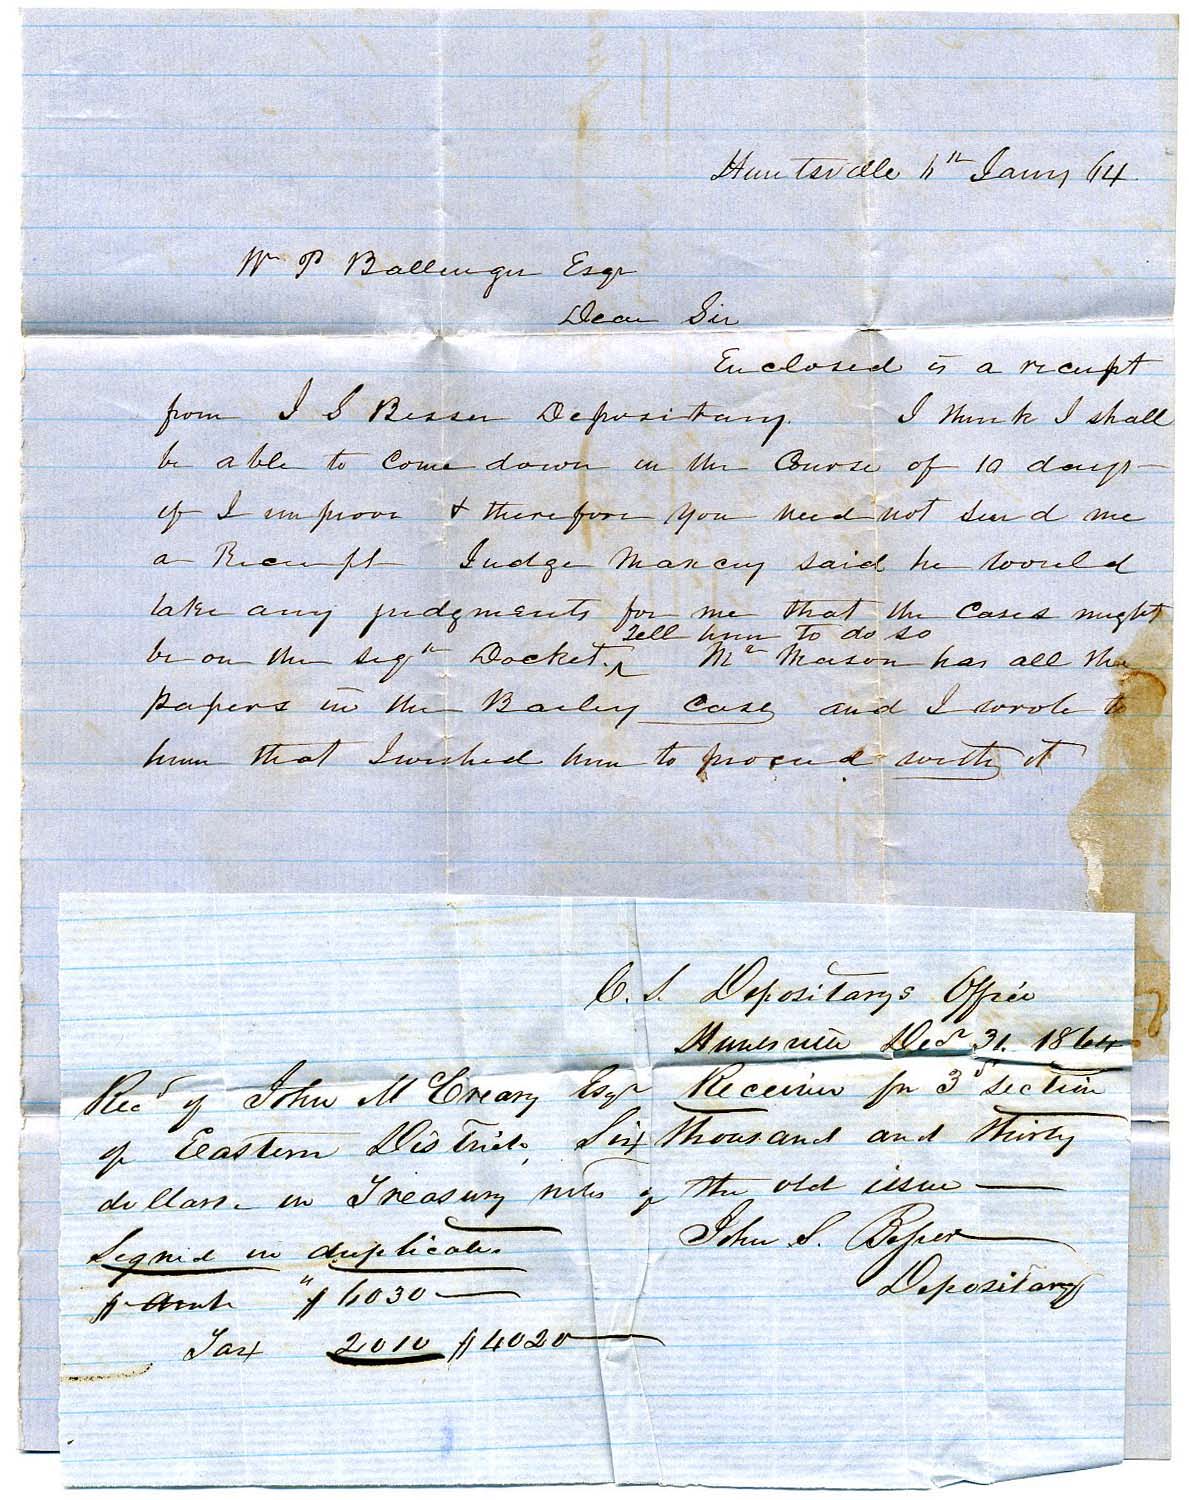 Huntsville 6th Jany 64
Wm P Ballinger Esqr
Dear Sir
Enclosed is a receipt
from J S Besser Depositary. I think I shall
be able to come down in the Course of 10 days
if I improve & therefore you need not send me
a Receipt Judge Maxcey said he would
take any judgments for me that the cases might
Tell him to do so
be on the seqtn Docket. ^ Mr Mason has all the
papers in the Bailey Case and I wrote to
him that I wished him to proceed with it
C. S. Depositarys Office
Huntsville Decr 31. 1864
Recd of John McCreary Esqr Receiver for 3d section
of Eastern District, Six thousand and thirty
dollars in Treasury notes of the old issue —
Signed in duplicate
John S. Besser
Depositary
$6030 —
Tax 2010 $4020 —